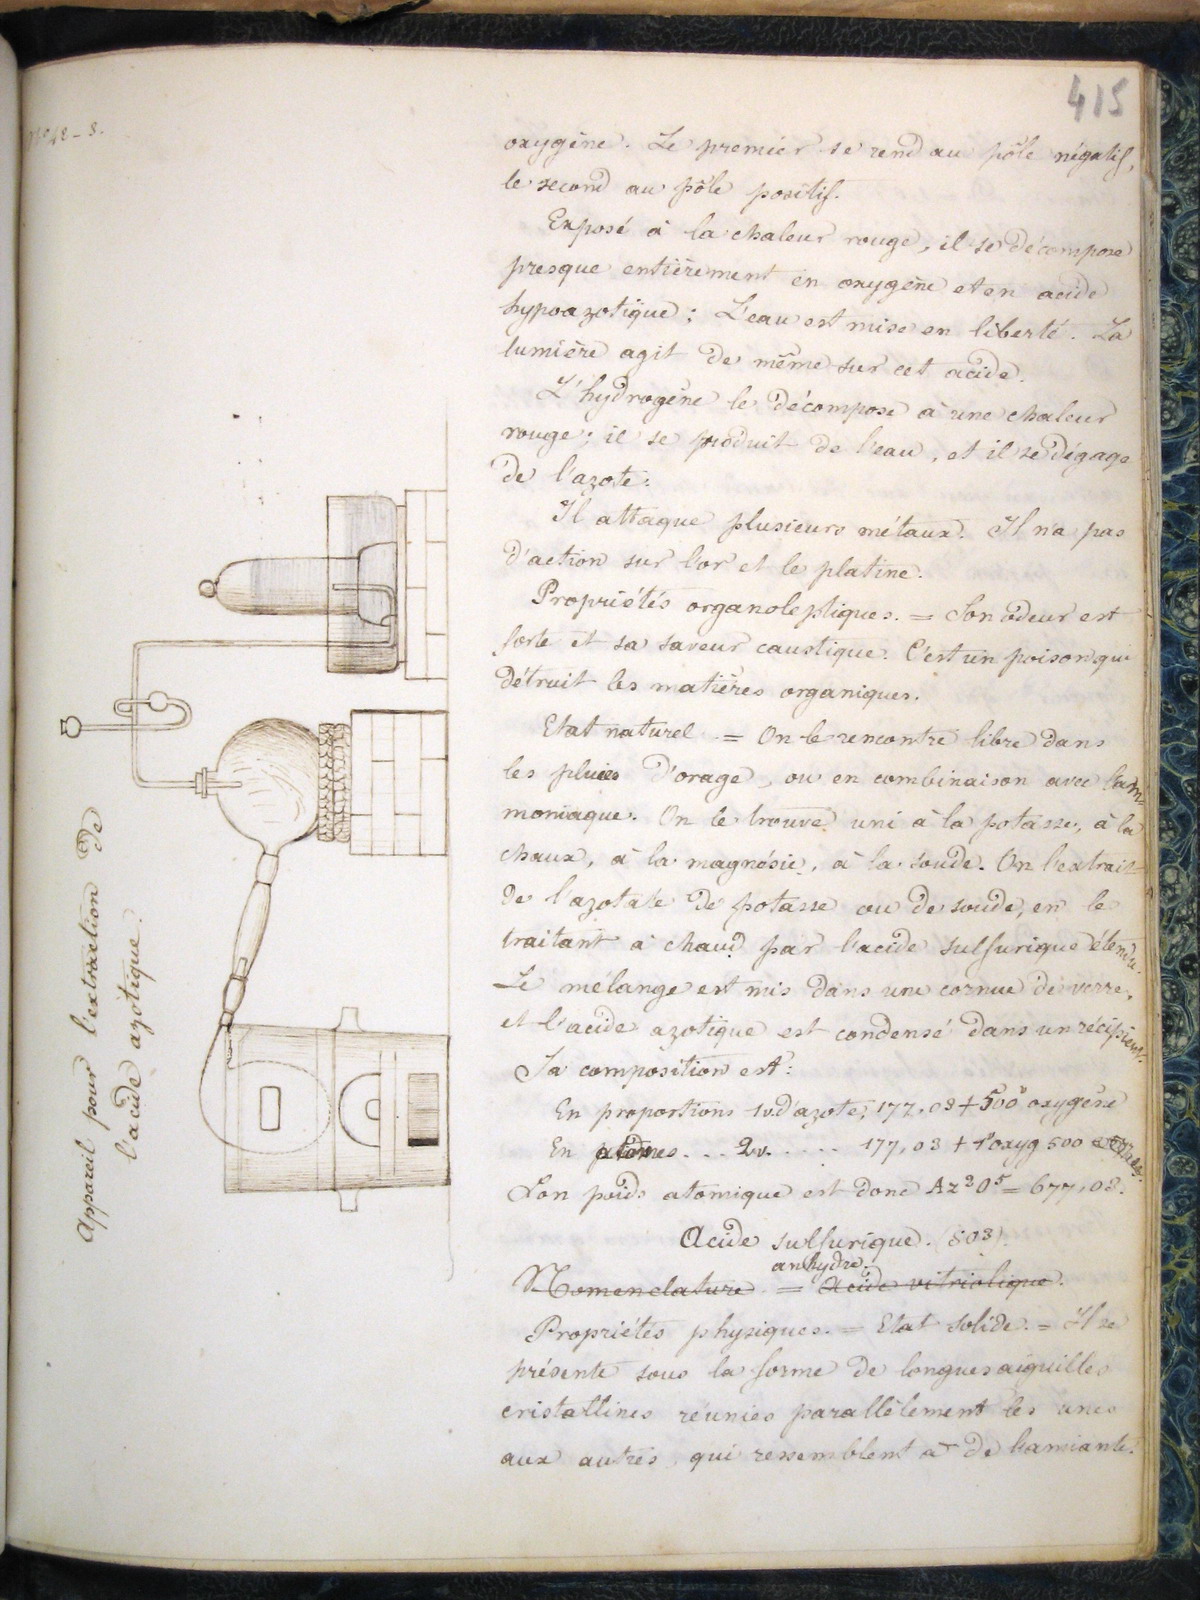 415
oxygène. Le premier se rend au pôle négatif,
le second au pôle positif.
Exposé à la chaleur rouge, il se décompose
presque entièrement en oxygène et en acide
hypoazotique ; L'eau est mise en liberté. La
lumière agit de même sur cet acide.
L'hydrogène le décompose à une chaleur
rouge ; il se produit de l'eau, et il se dégage
de l'azote.
Il attaque plusieurs métaux. Il n'a pas
d'action sur l'or et le platine.
Propriétés organoleptiques. = Son odeur est
forte et sa saveur caustique. C'est un poison qui
détruit les matières organiques.
Etat naturel. = On le rencontre libre dans
les pluies d'orage, ou en combinaison avec l'am-
moniaque. On le trouve uni à la potasse, à la
chaux, à la magnésie, à la soude. On l'extrait
de l'azotate de potasse ou de soude, en le
traitant à chaud par l'acide sulfurique étendu.
Le mélange est mis dans une cornue de verre,
et l'acide azotique est condensé dans un récipient.
Sa composition est :
En proportions 1v. d'azote, 177,03 + 500 oxygène
En atomes . . . 2v. . . . . 177,03 + oxyg 500
Son poids atomique est donc Az²O⁵ = 677,03.
Acide sulfurique. (SO3)
anhydre.
Nomenclature = Acide vitriolique.
Propriétés physiques. = Etat solide. = Il se
présente sous la forme de longues aiguilles
cristallines réunies parallèlement les unes
aux autres, qui ressemblent à de l'amiante.
Appareil pour l'extraction de
l'acide azotique.